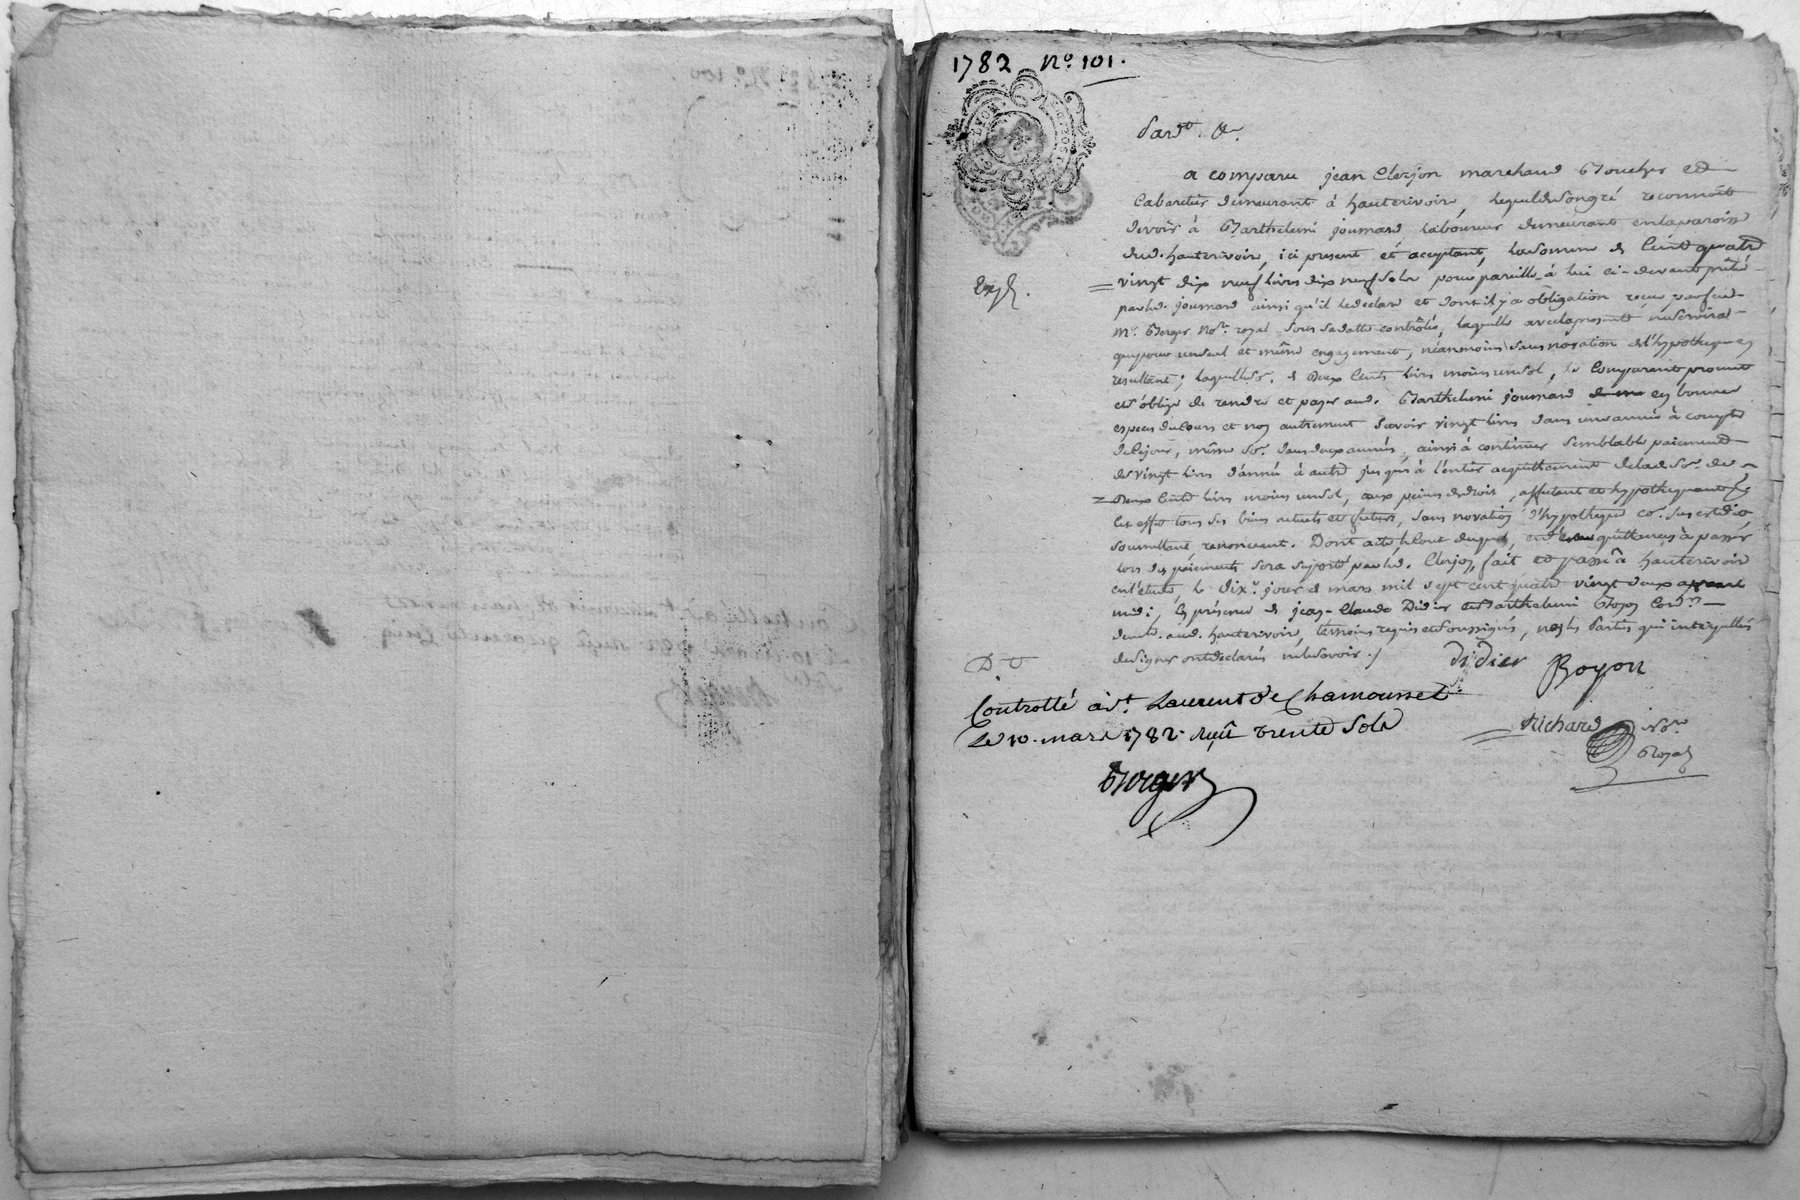 1782 N.º 101.
Pard.t &.
a comparu jean Clerjon marchand Boucher et
Cabaretier demeurant à hauterivoire, lequel de son gré reconnoît
devoir à Barthelemi joumard laboureur demeurant en la paroisse
dud. hauterivoire, ici present et acceptant, la somme de Cent quatre
vingt dix neuf livres dix neuf sols pour pareille à lui ci-devant prêtée
Exp.
par led. joumard ainsi qu'il le declare et dont il y a obligation recue par feu
m.e Berger no.re royal sous sa datte contrôlée, laquelle avec la presente ne servira
que pour un seul et même engagement, néanmoins sans novation de l'hypotheque en
resultant; laquelle so. de Deux Cents livres moins un sol, le Comparant promet
et s'oblige de rendre et payer aud. Barthelemi joumard en bonnes
especes du Cours et non autrement savoir vingt livres dans une année à compter
de ce jour, même so. dans deux années, ainsi à continuer semblable paiement
de vingt livres d'année à autre jusqu'à l'entier acquittement de lad. so. de
Deux Cents livres moins un sol, aux peines de droit, affectant et hypothequant
à cet effet tous ses biens actuels et futurs, sans novation d'hypotheque
soumettant, renonceant. Dont acte, le Cout duquel, et des quittances à passer
lors des paiements sera suporté par led. Clerjon, fait et passé à hauterivoire
en l'étude, le dix.e jour de mars mil sept cent quatre vingt deux avant
midi; En présence de jean-Claude Didier et Barthelemi Boyon Cord.rs
dem.t aud. hauterivoire, témoins requis et soussignés, non les Parties qui interpellées
de signer ont declarés ne le savoir ./
Didier Boyon
Controllé à S.t Laurent de Chamousset
Le 10. mars 1782. Reçû trente Sols
Richard no.re
Royal
Berger